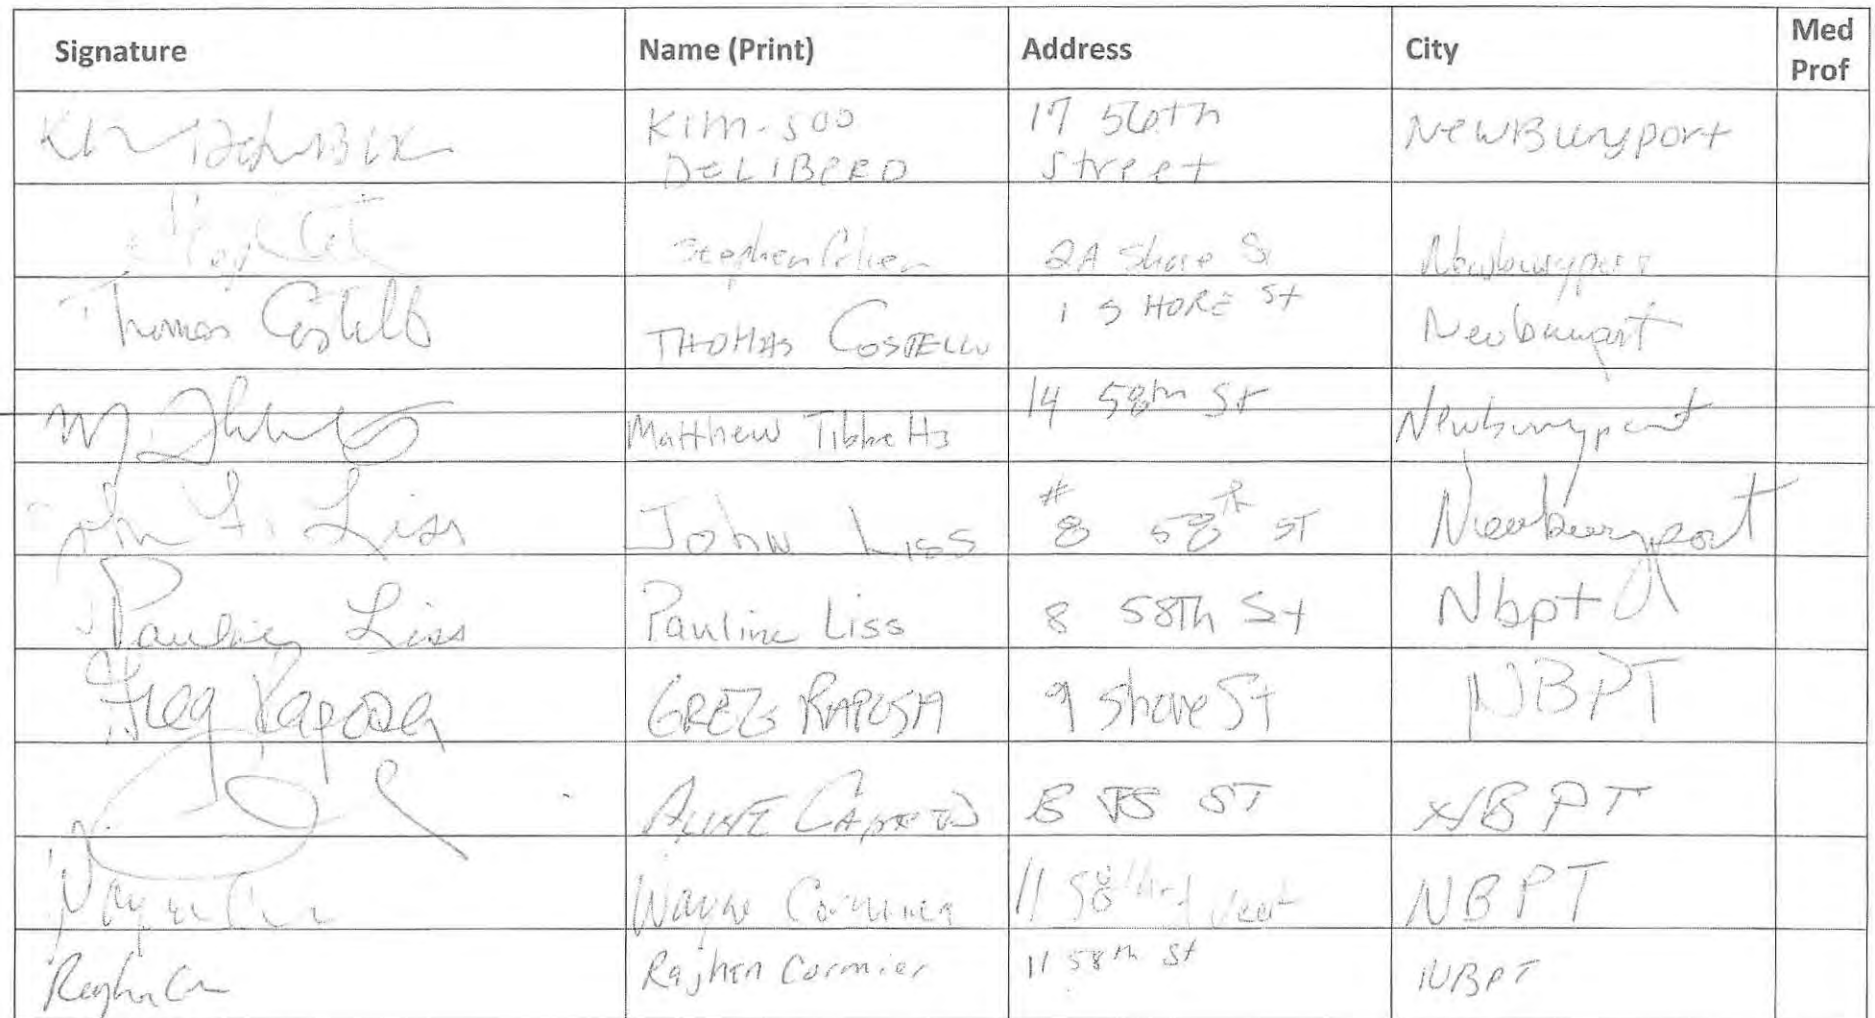 Signature Name (Print) Address City Med Prof
Kim-soo DELIBERO 17 56th Street NewBuryport
Stephen Cohen 2A Shore St Newburyport
Thomas Costello THOMAS COSTELLO 1 SHORE St Newburyport
Matthew Tibbetts 14 58th St Newburyport
John F. Liss John Liss # 8 58th ST Newburyport
Pauline Liss Pauline Liss 8 58Th St Nbpt
Greg Raposa GREG RAPOSA 9 Shore St NBPT
ST NBPT
Wayne Cormier 11 58th NBPT
Cormier 11 58th St NBPT